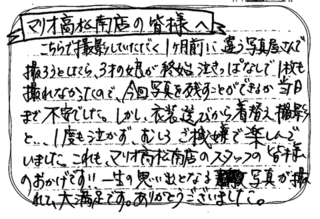 マリオ高松南店の皆様へ
こちらで撮影していただく1ヶ月前に、違う写真屋さんで
撮ろうとしたら、3才の娘が終始泣きっぱなしで1枚も
撮れなかったので、今回写真を残すことができるか当日
まで不安でした。しかし、衣装選びから着替え、撮影
と…、1度も泣かず、むしろご機嫌で楽しんで
いました。これも、マリオ高松南店のスタッフの皆様
のおかげです!!一生の思い出となる写真が撮
れて、大満足です。ありがとうございました。